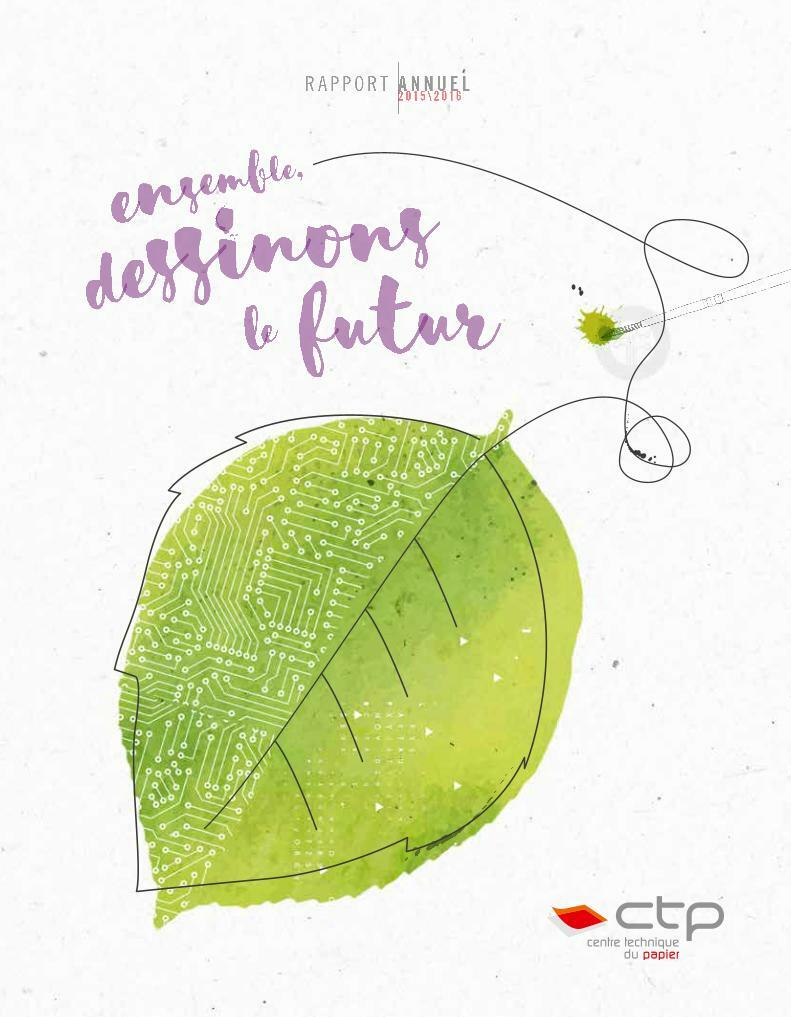 RAPPORT ANNUEL
2015\2016
ensemble,
dessinons
le futur
ctp
centre technique
du papier